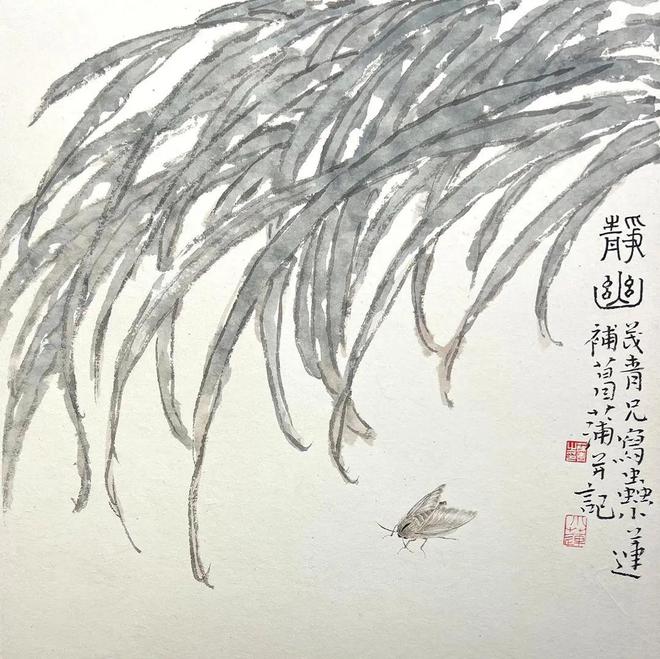 靜幽
茂青兄寫蟲小蓮
補菖蒲并記
小蓮